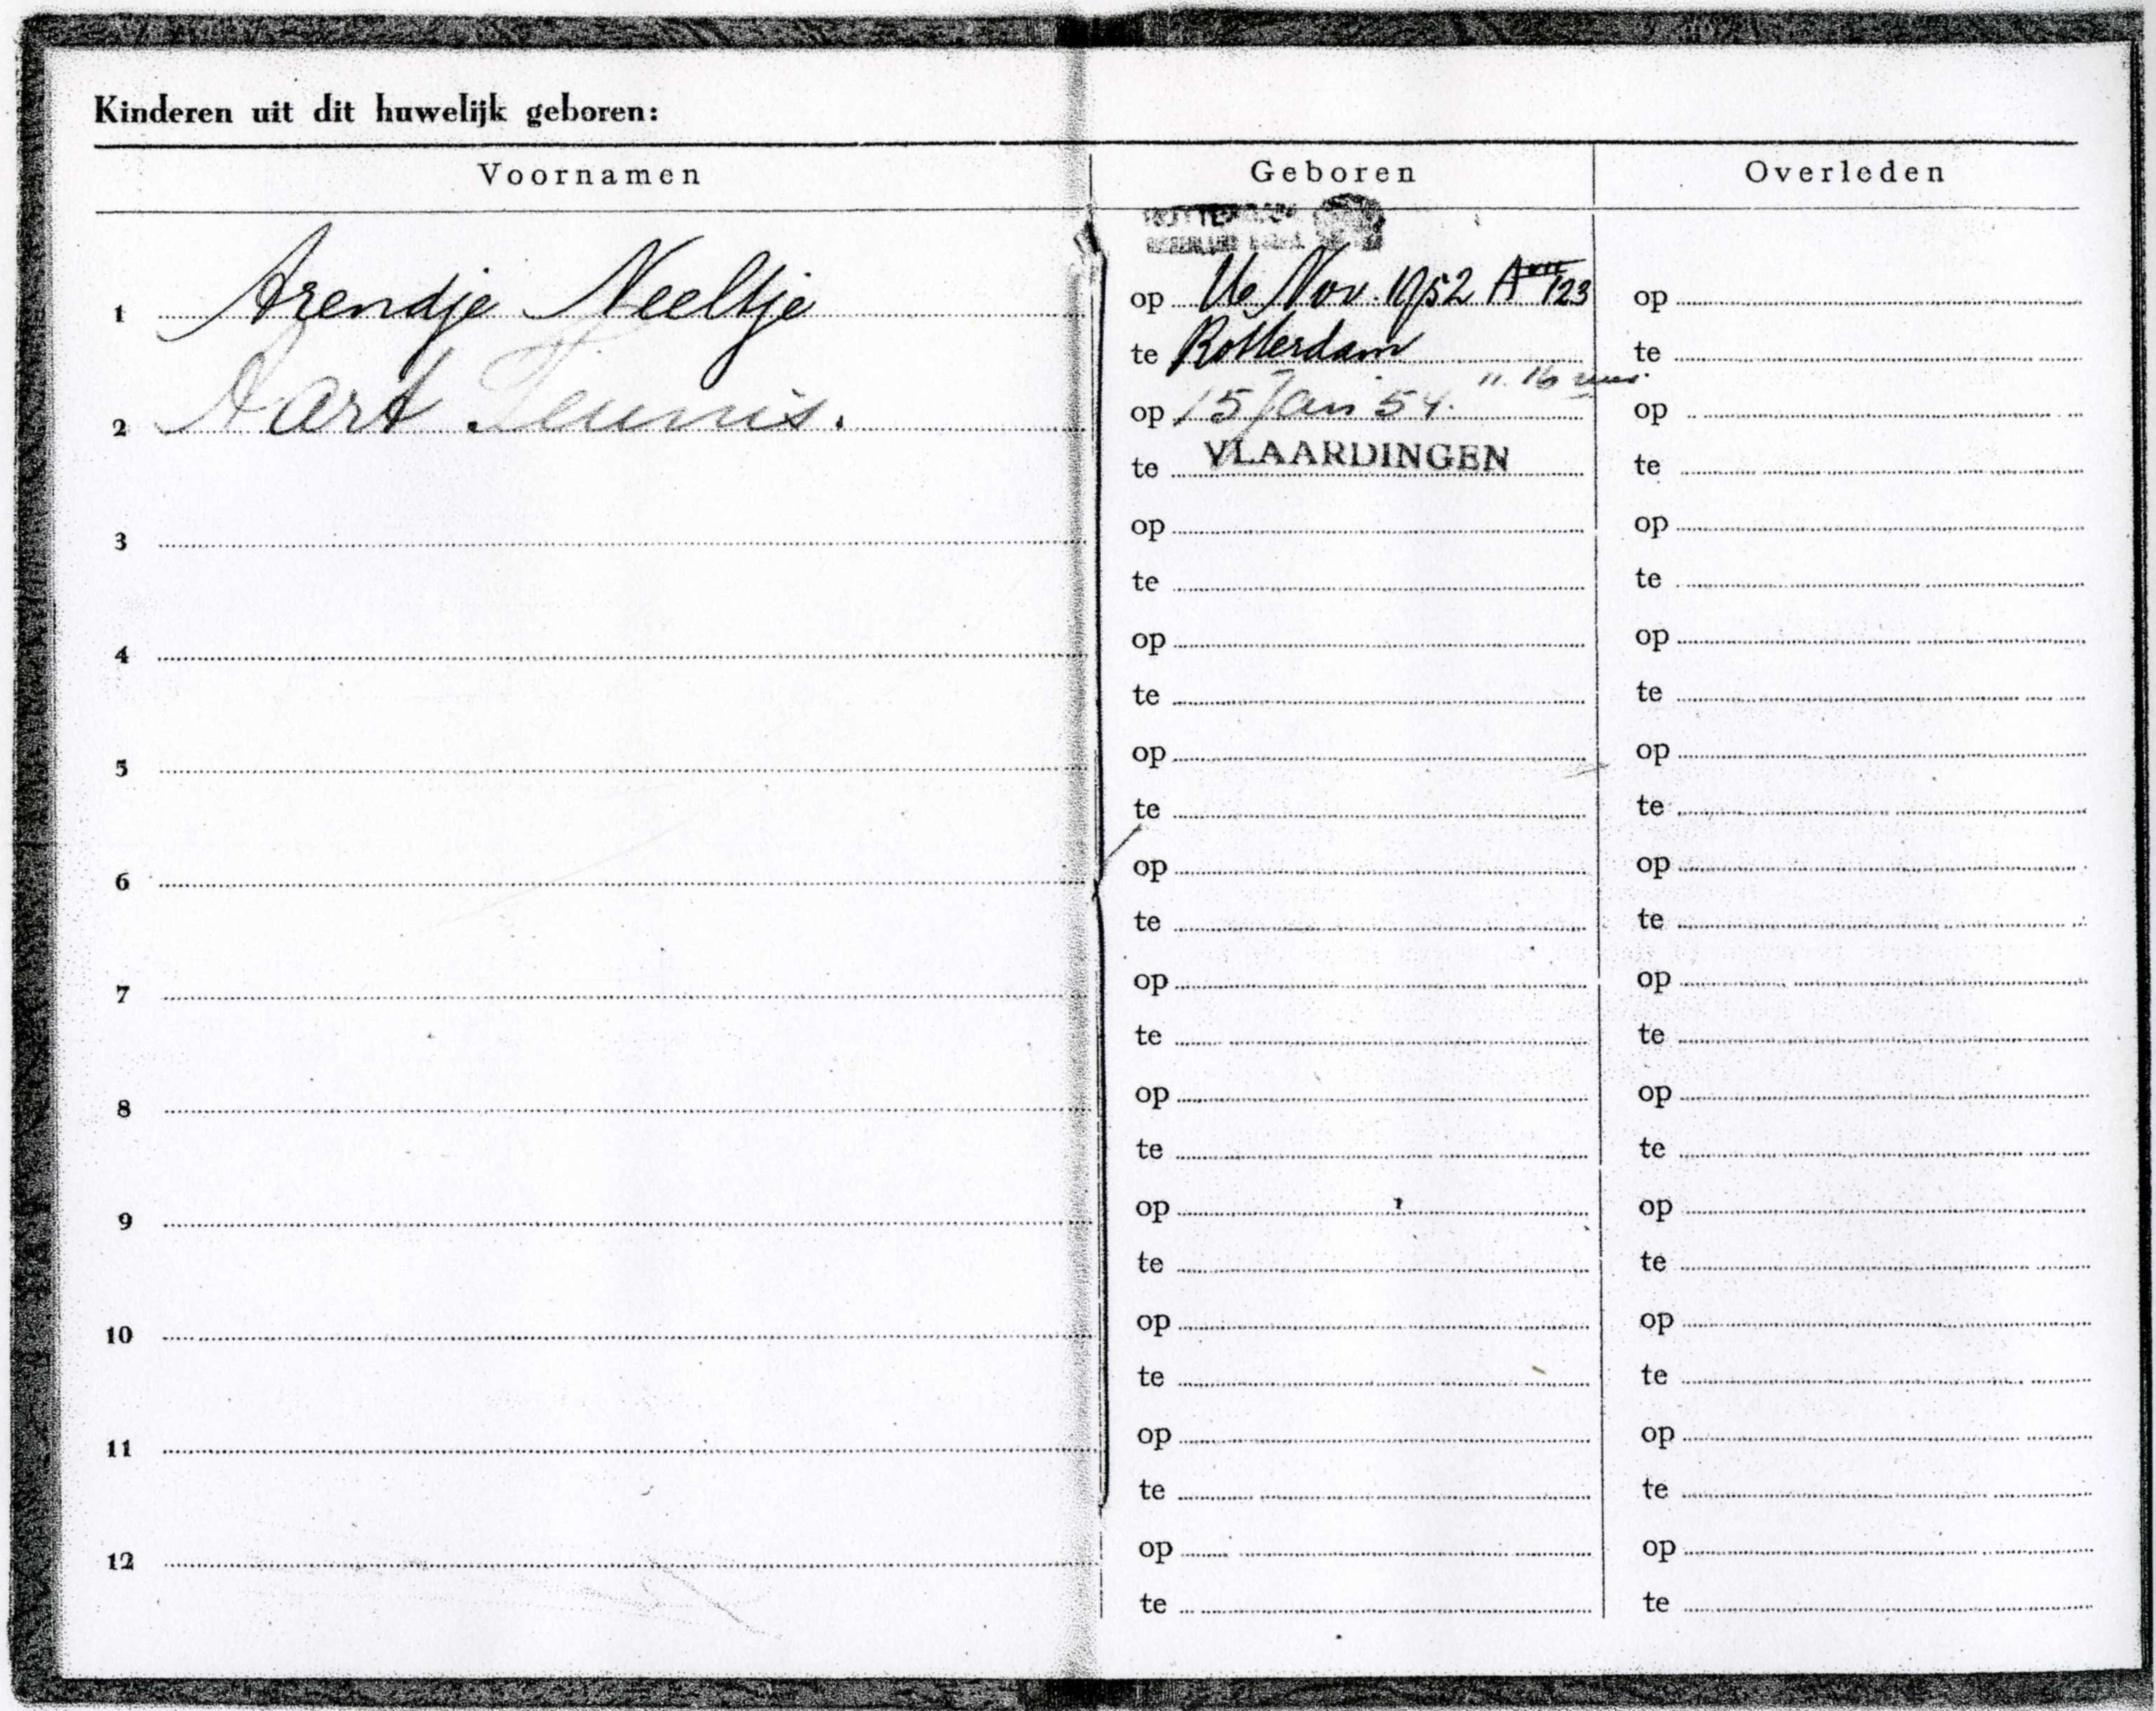 Kinderen uit dit huwelijk geboren:
Voornamen Geboren Overleden
1 Arendje Neeltje op Nov. 1952 op
te Rotterdam te
2 Aart Teunis. op 15 Jan 54. op
te VLAARDINGEN te
3 op op
te te
4 op op
te te
5 op op
te te
6 op op
te te
7 op op
te te
8 op op
te te
9 op op
te te
10 op op
te te
11 op op
te te
12 op op
te te